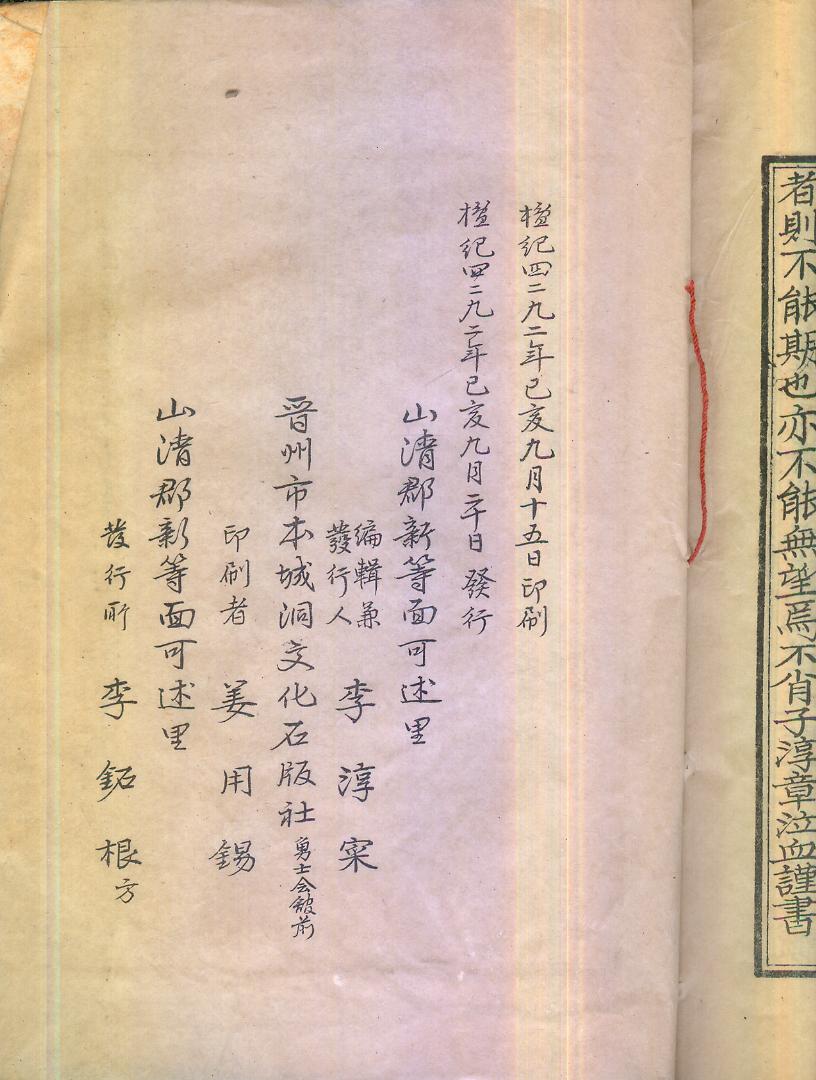 者則不能期也亦不能無望焉不肖子淳章泣血謹書
檀紀四二九二年己亥九月十五日印刷
檀紀四二九二年己亥九月二十日發行
山淸郡新等面可述里
編輯兼
發行人
李淳寀
晋州市本城洞文化石版社勇士会舘前
印刷者 姜用錫
山淸郡新等面可述里
發行所 李鉐根方